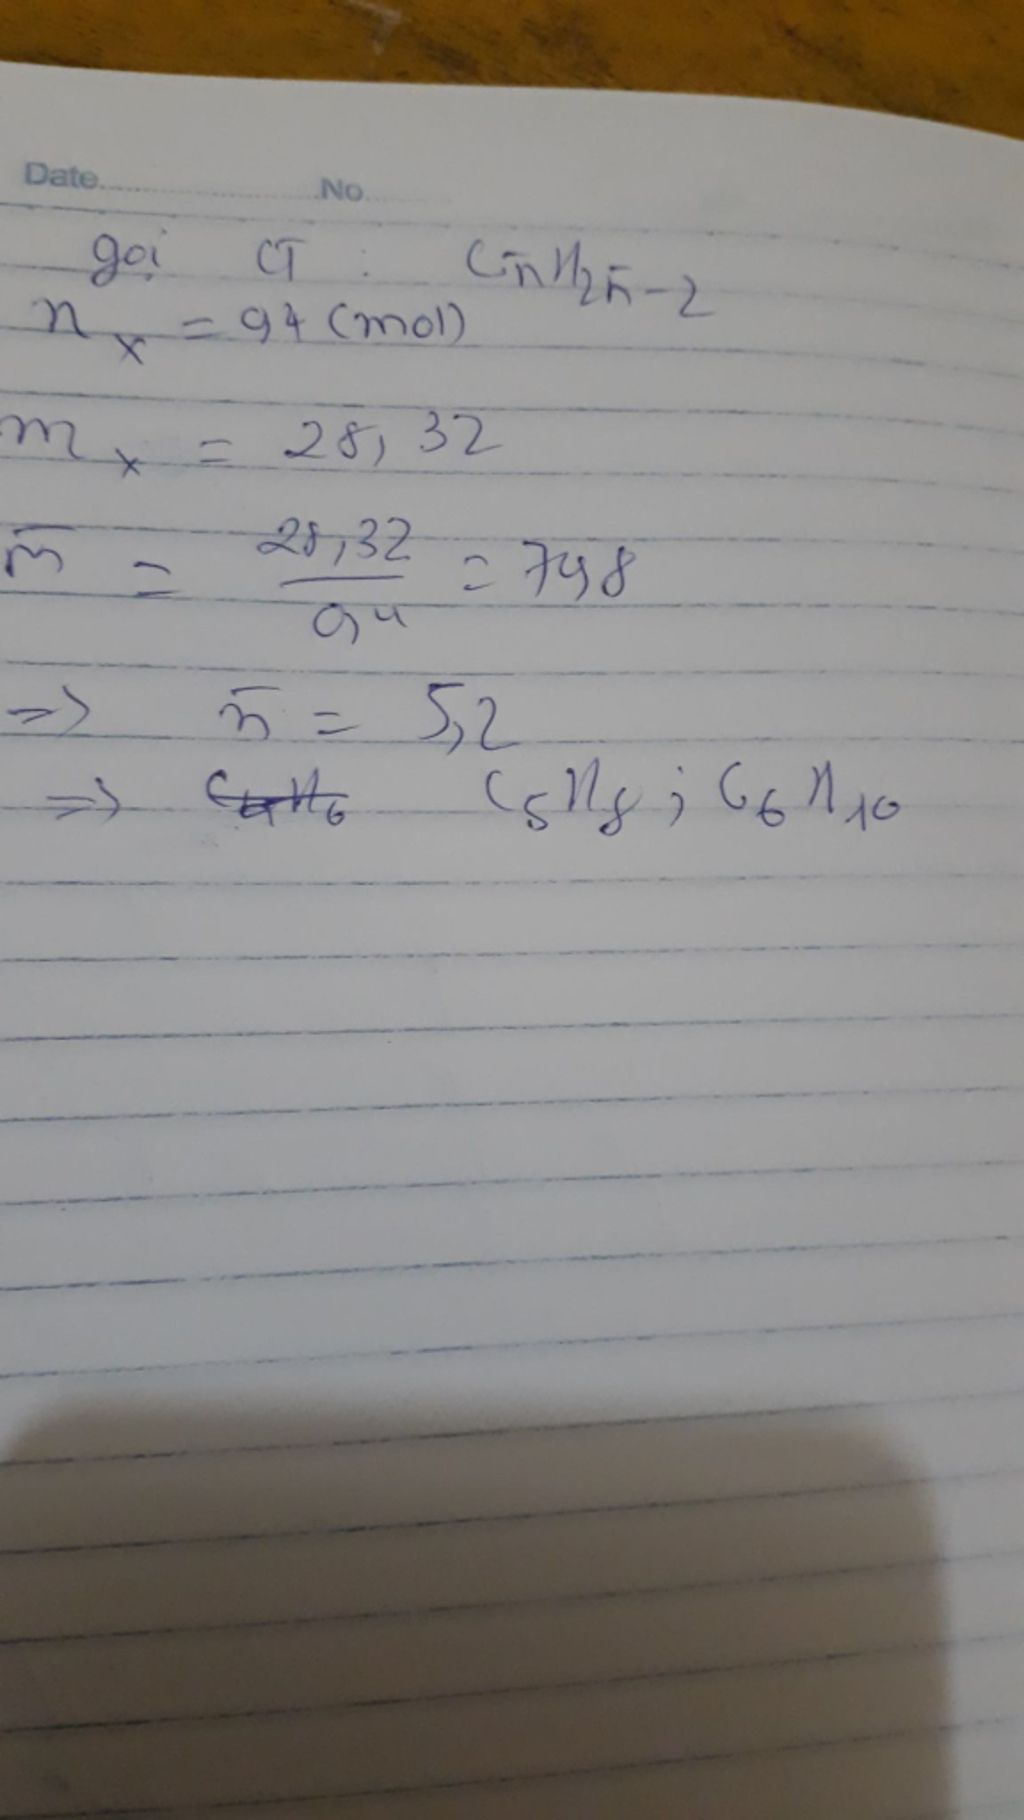 Date............No......
gọi CT : Cn̄H2n̄-2
nx = 0,4 (mol)
mx = 28,32
m̄ = 28,32 / 0,4 = 70,8
=> n̄ = 5,2
=> C4H6 C5H8 ; C6H10